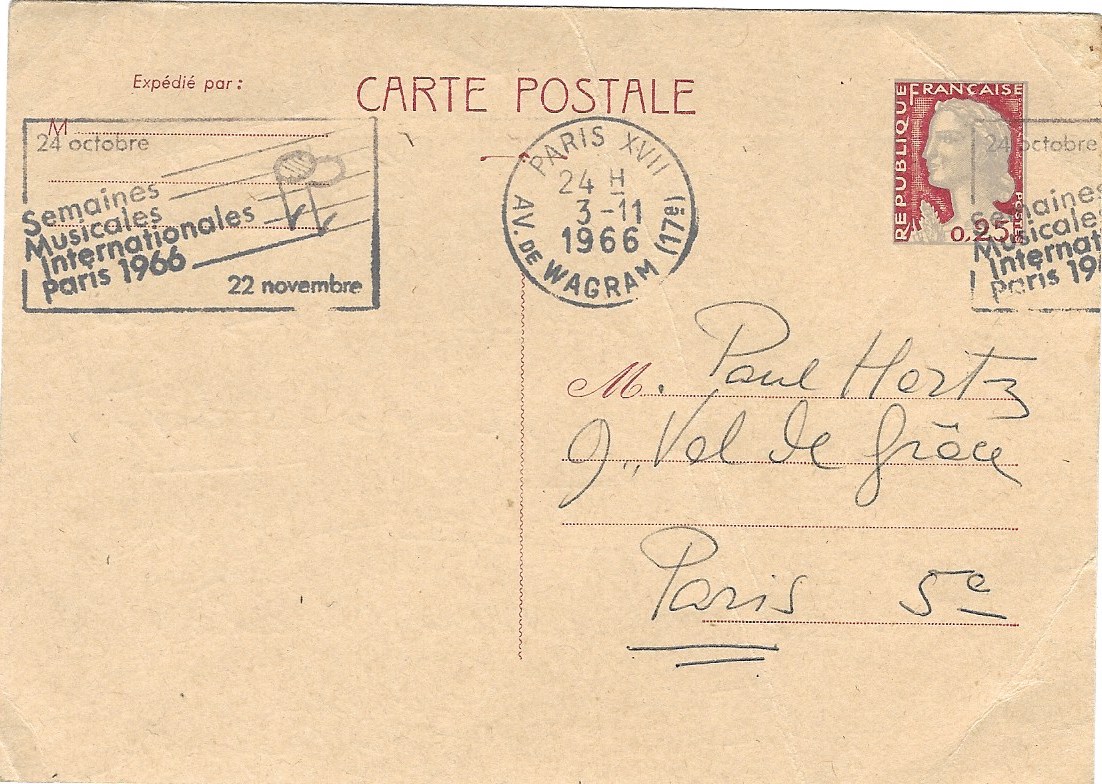 Expédié par :
CARTE POSTALE
RÉPUBLIQUE FRANÇAISE
POSTES
0,25
M
24 octobre
Semaines
Musicales
Internationales
Paris 1966
22 novembre
PARIS XVII
24 H
3-11
1966
AV. DE WAGRAM (17e)
24 octobre
Semaines
Musicales
Internat
Paris 19
M. Paul Hertz
9, Val de Grâce
Paris 5e